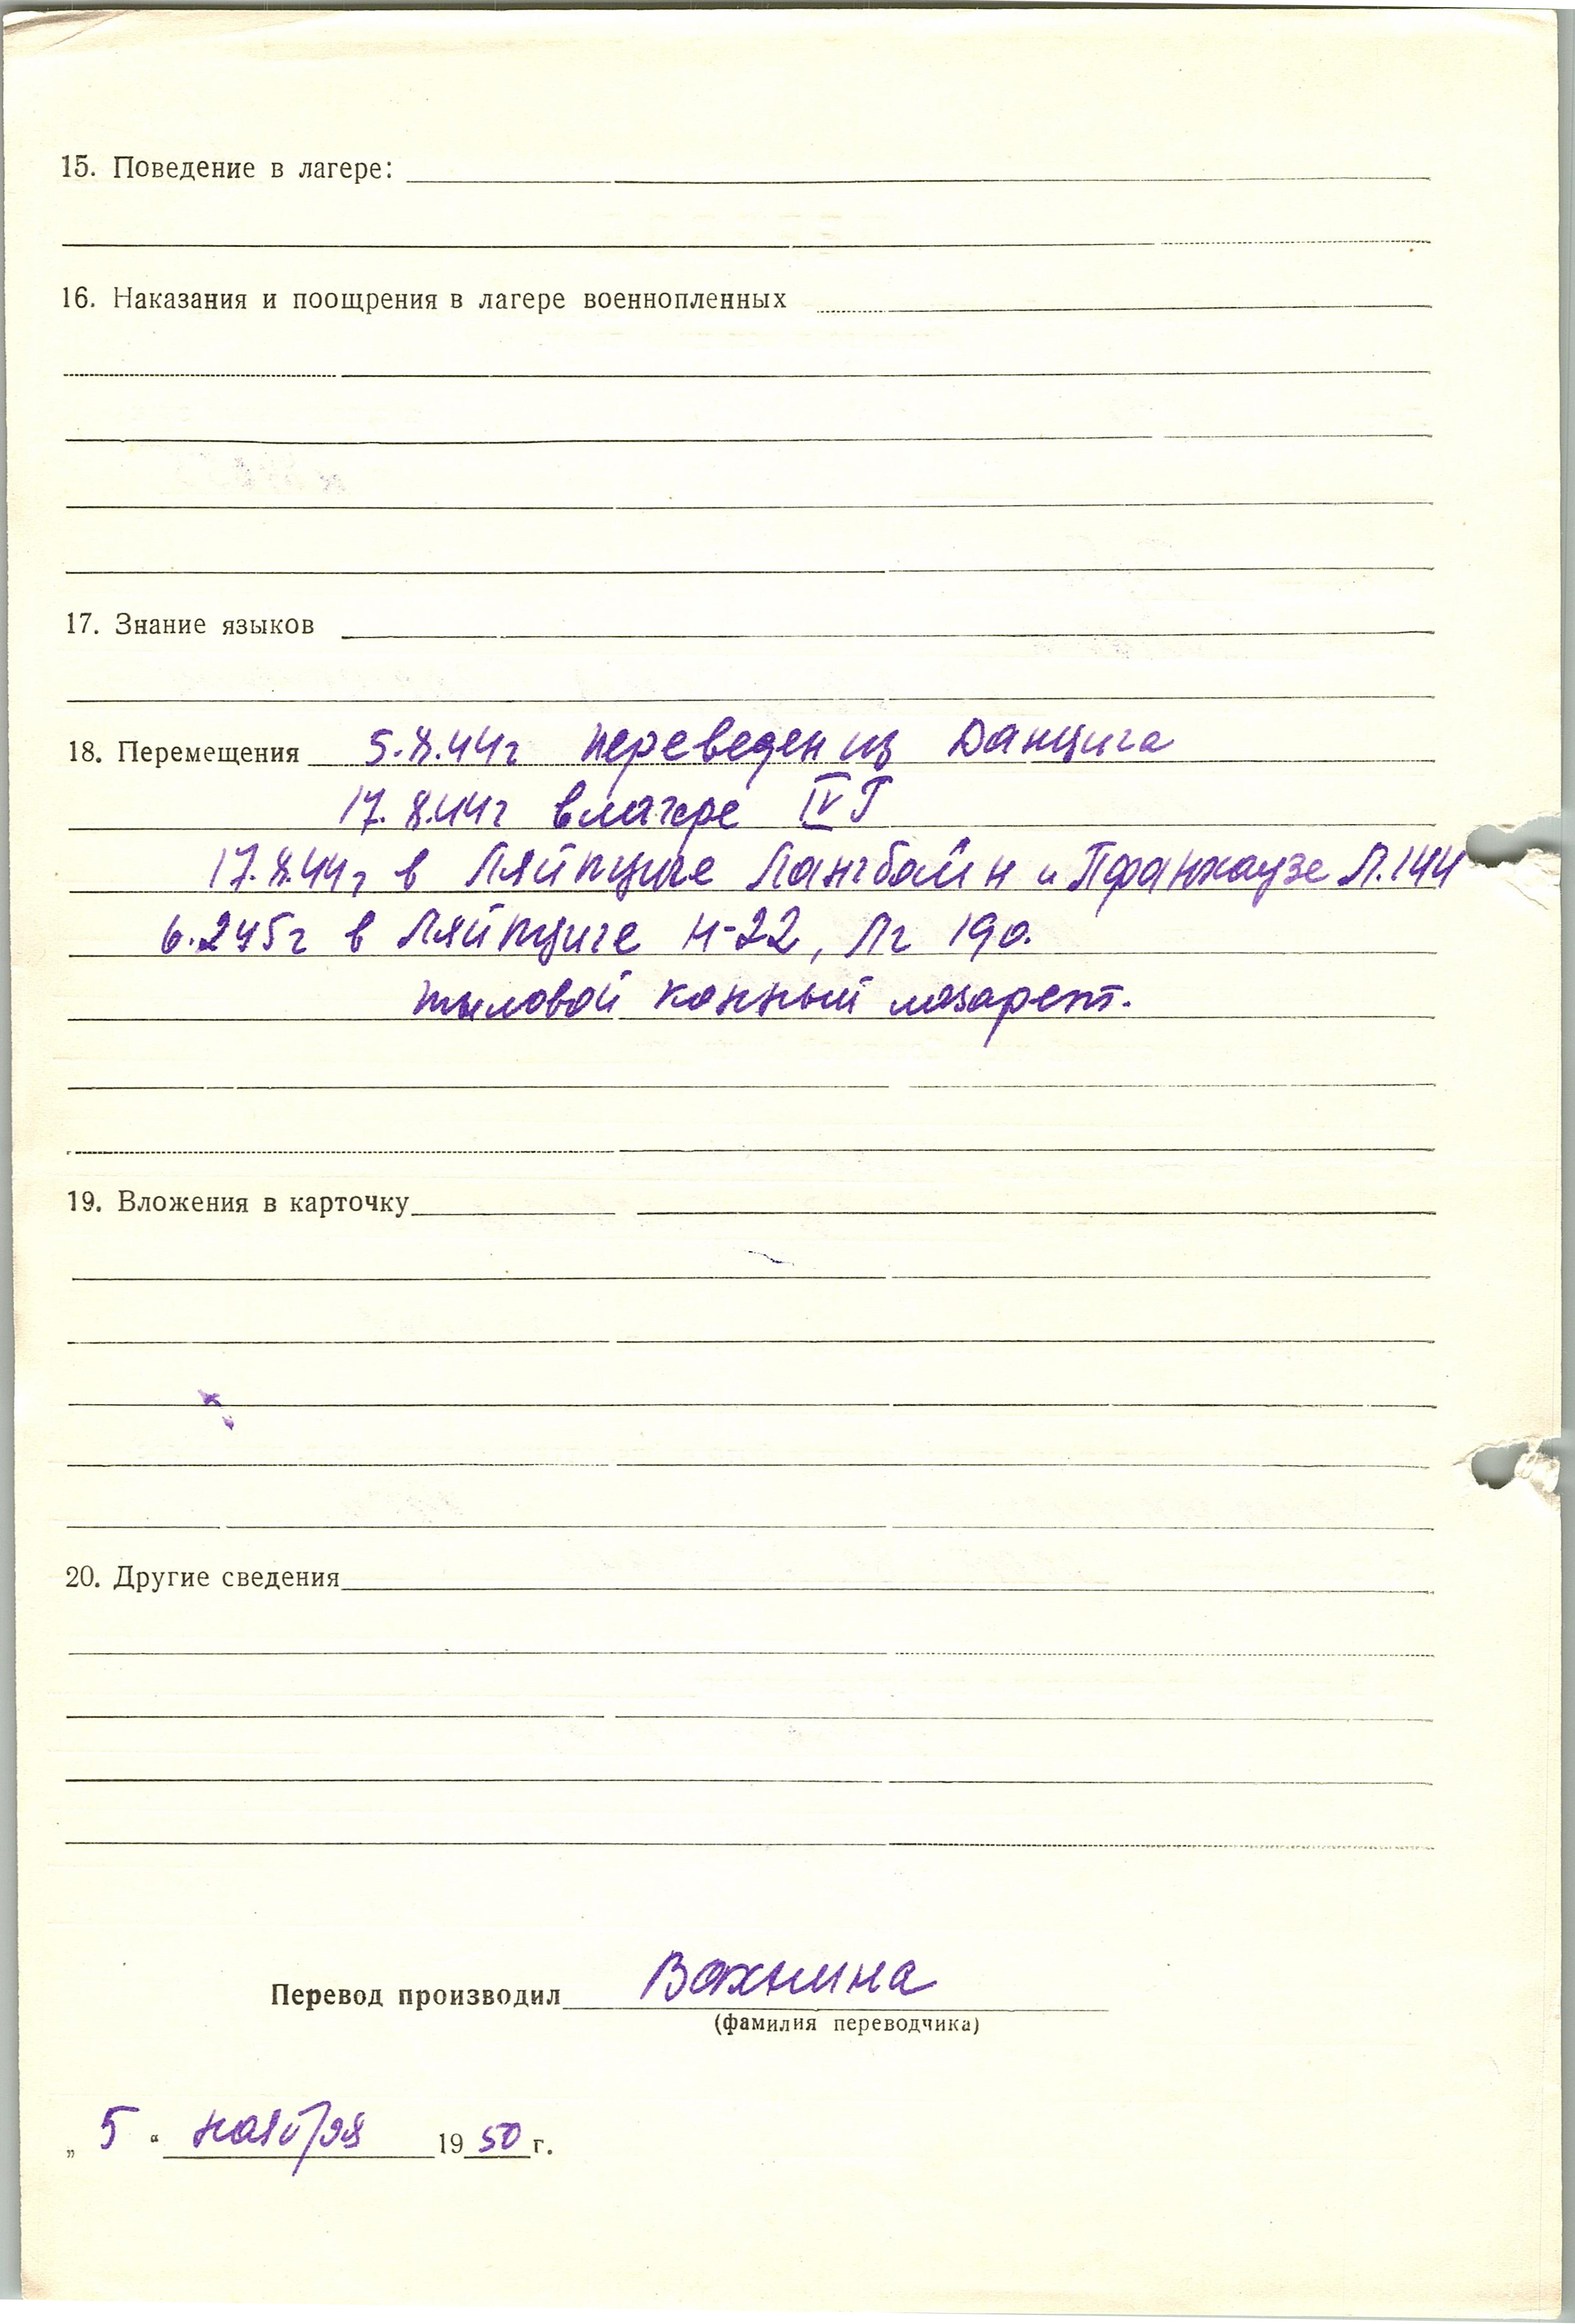 15. Поведение в лагере:
16. Наказания и поощрения в лагере военнопленных
17. Знание языков
18. Перемещения 5.8.44г переведен из Данцига
17.8.44г в лагере IV Г
17.8.44г в Ляйпциге Лангбайн и Пфанхаузе Л.144
6.2 45г в Ляйпциге Н-22, Лг 190.
тыловой конный лазарет.
19. Вложения в карточку
20. Другие сведения
Перевод производил Вахнина
(фамилия переводчика)
„ 5 “ ноября 19 50 г.